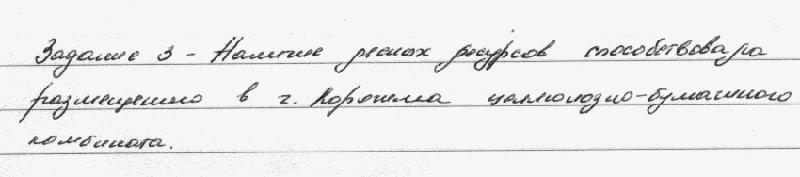 Задание 3 - Наличие лесных ресурсов способствовало
размещению в г. Коряжма целлюлозно-бумажного
комбината.